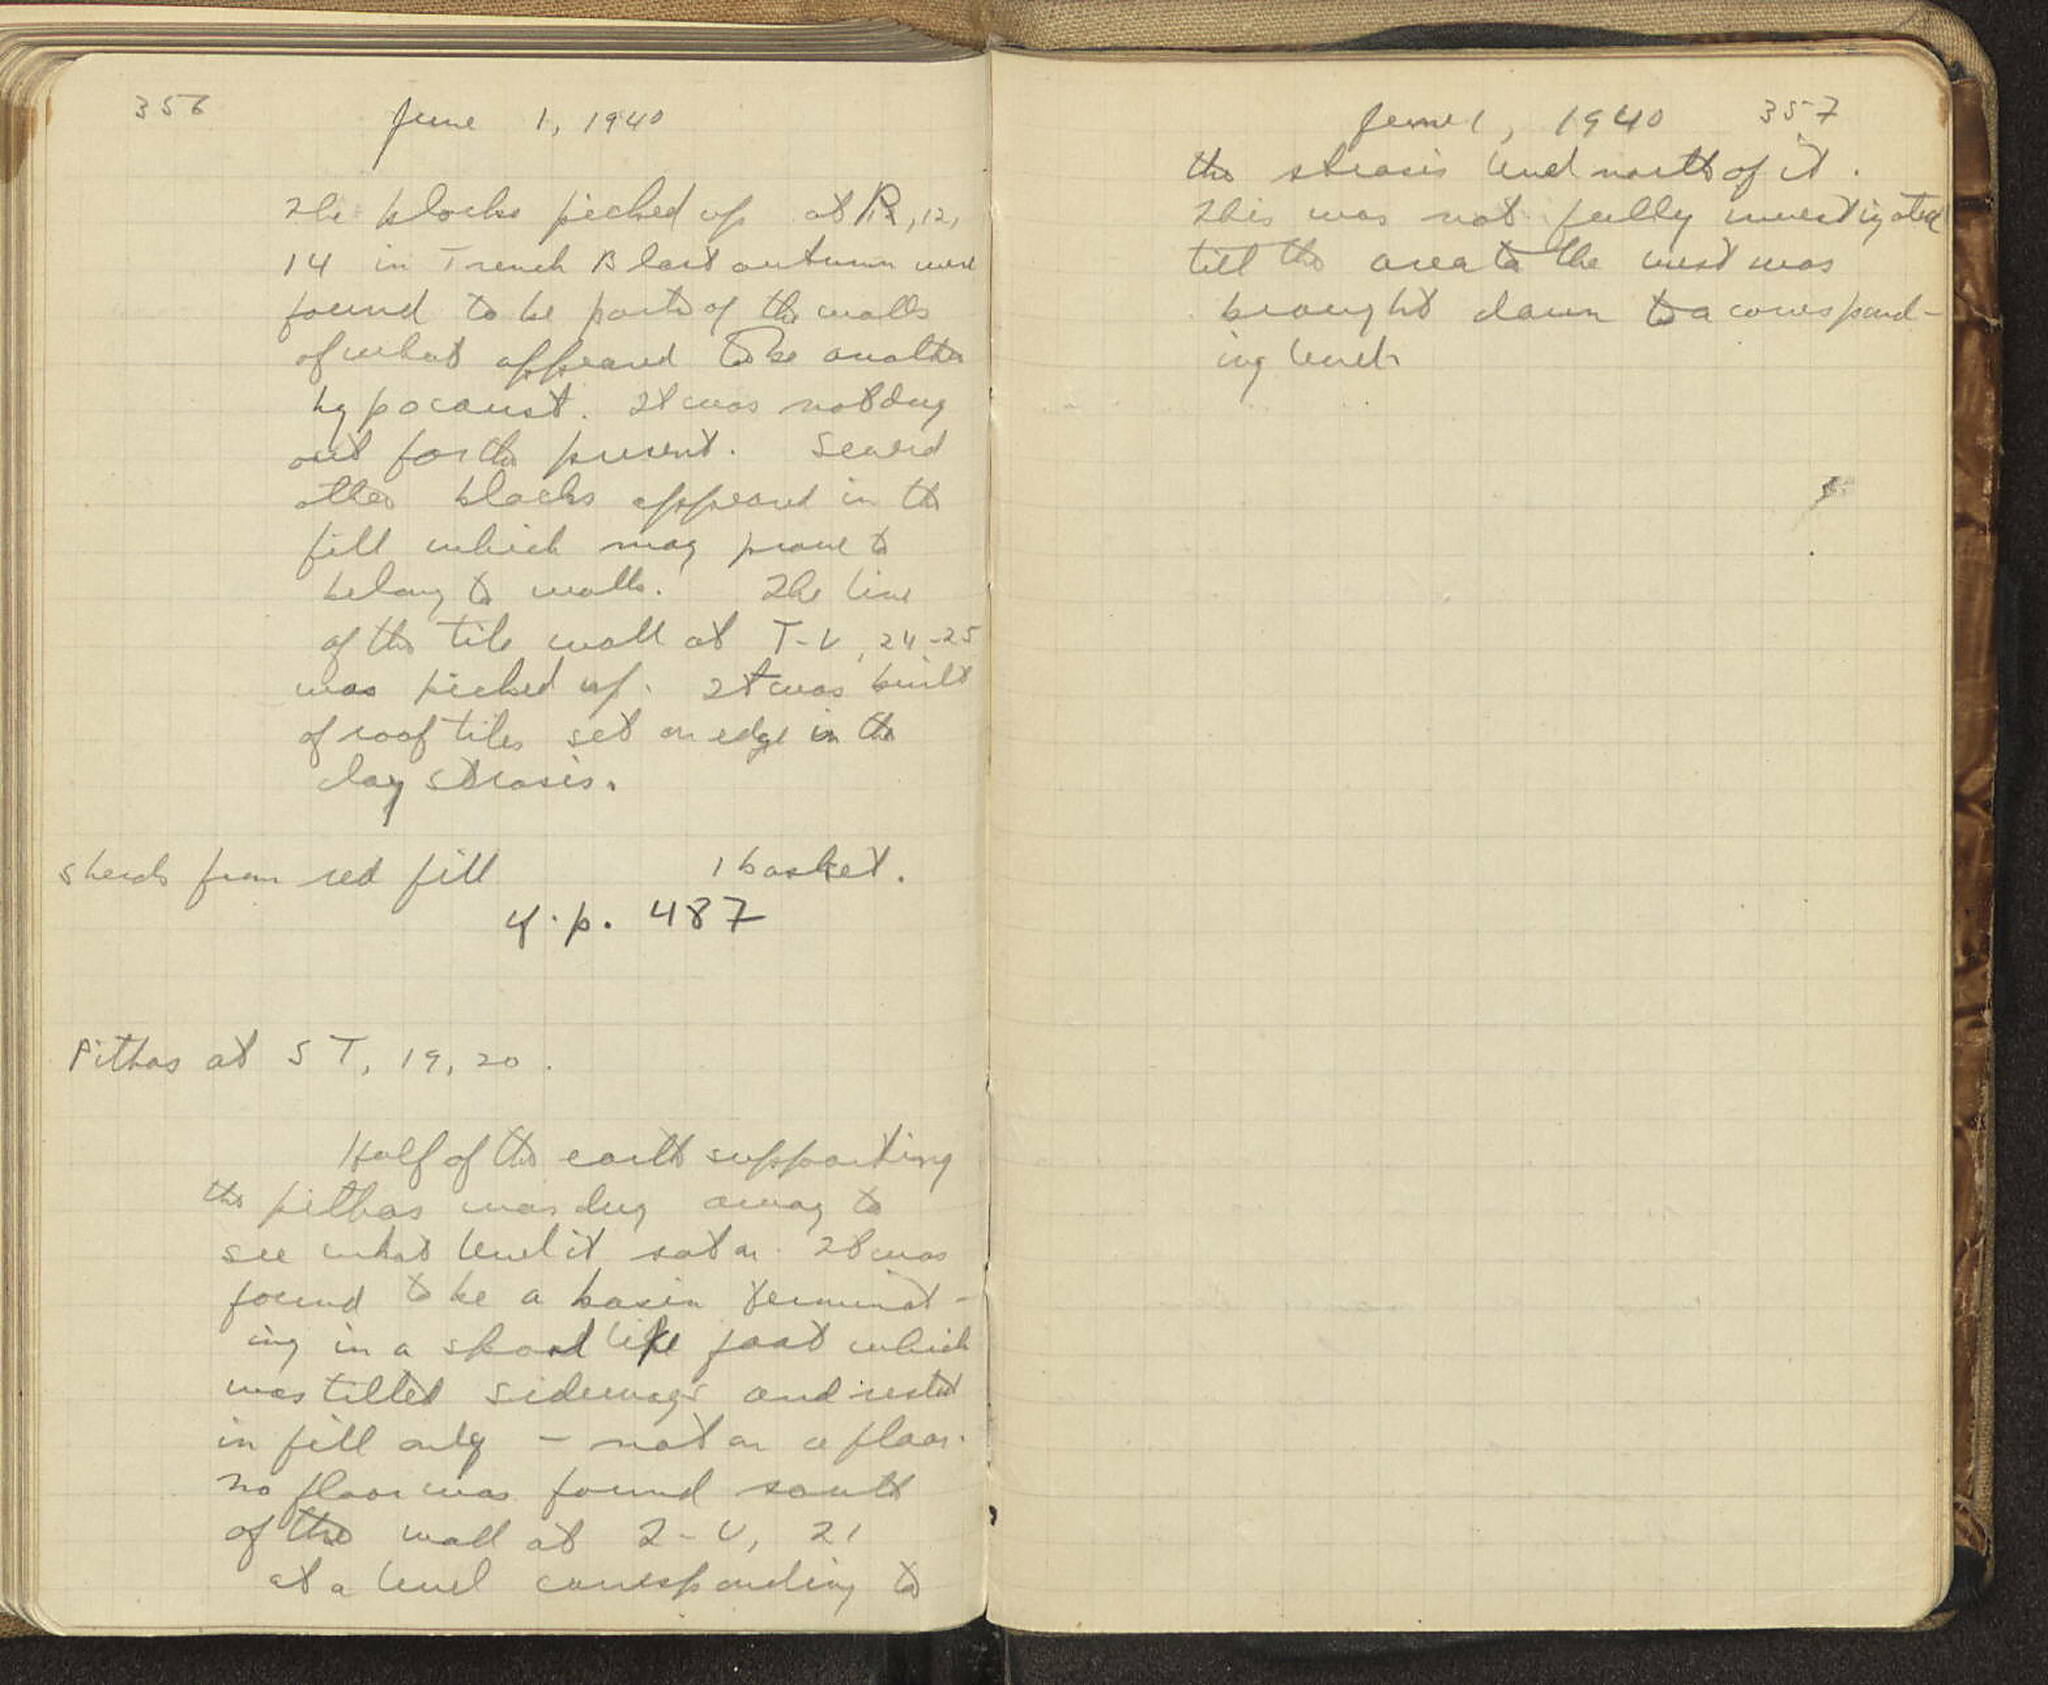 356
June 1, 1940
The blocks picked up at R, 12,
14 in Trench B last autumn were
found to be parts of the walls
of what appeared to be another
hypocaust. It was not dug
out for the present. Several
other blocks appeared in the
fill which may prove to
belong to walls. The line
of the tile wall at T-V, 24-25
was picked up. It was built
of roof tiles set on edge in the
clay strosis.
Sherds from red fill 1 basket.
cf. p. 487
Pithos at S T, 19, 20.
Half of the earth supporting
the pithos was dug away to
see what level it sat on. It was
found to be a basin terminat-
ing in a like foot which
was tilted sideways and rested
in fill only - not on a floor.
No floor was found south
of the wall at -V, 21
at a level corresponding to
June 1, 1940 357
the strosis level north of it.
This was not fully investigated
till the area to the west was
brought down to a correspond-
ing level.